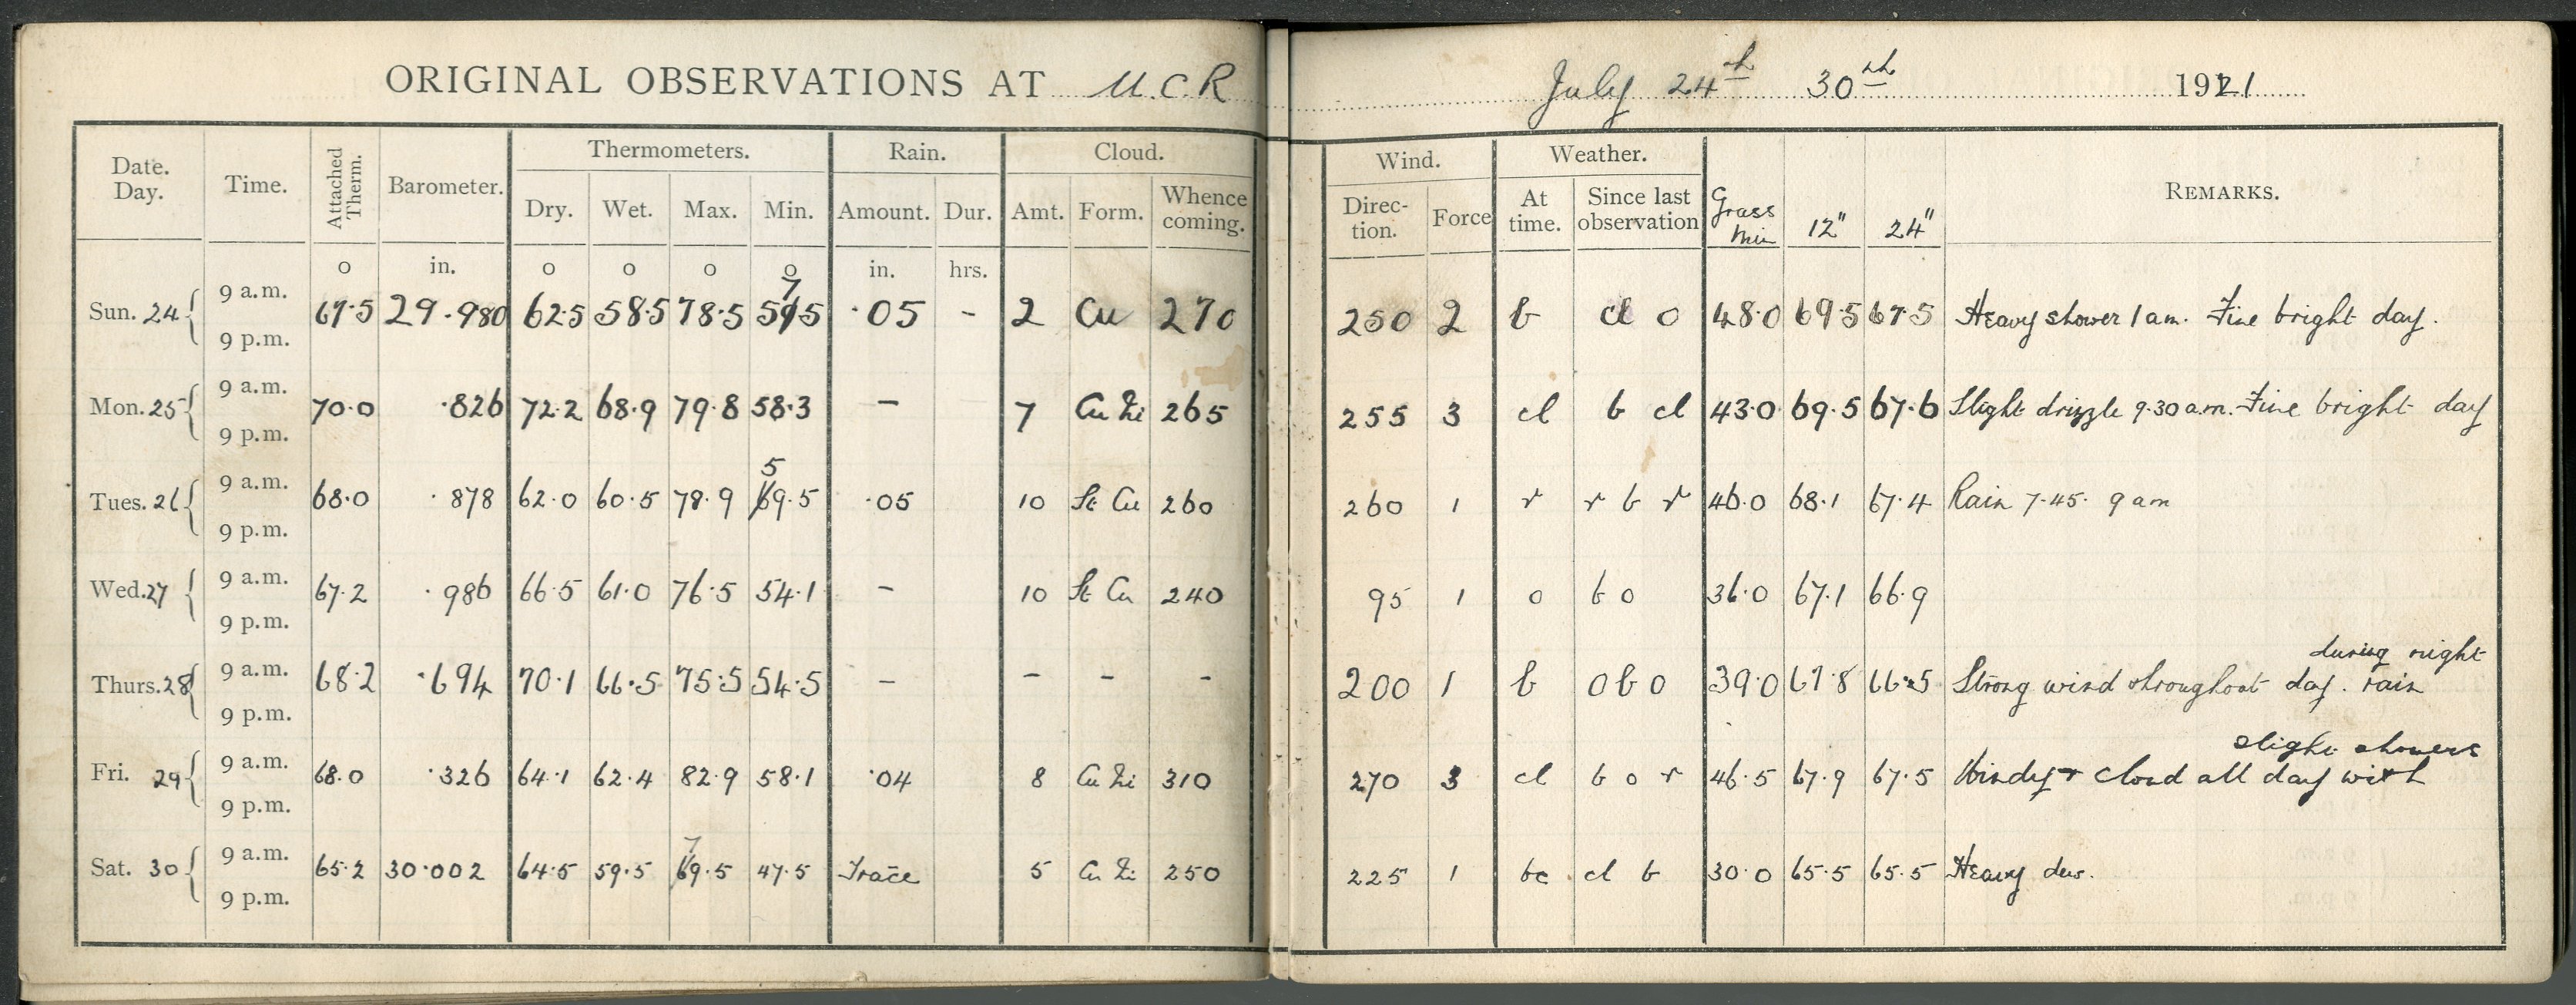 ORIGINAL OBSERVATIONS AT U.C.R July 24th 30th 1921
Date. Day. Time. Attached Therm. Barometer. Thermometers. Rain. Cloud. Wind. Weather. Grass Min 12" 24" REMARKS.
Dry. Wet. Max. Min. Amount. Dur. Amt. Form. Whence coming. Direc-tion. Force At time. Since last observation
o in. o o o o in. hrs.
Sun. 24 9 a.m. 67.5 29.980 62.5 58.5 78.5 57.5 .05 - 2 Cu 270 250 2 b cl o 48.0 69.5 67.5 Heavy shower 1 am. Fine bright day.
9 p.m.
Mon. 25 9 a.m. 70.0 .826 72.2 68.9 79.8 58.3 — 7 Cu Ni 265 255 3 cl b cl 43.0 69.5 67.6 Slight drizzle 9.30 a.m. Fine bright day
9 p.m.
Tues. 26 9 a.m. 68.0 .878 62.0 60.5 78.9 59.5 .05 10 St Cu 260 260 1 r r b r 46.0 68.1 67.4 Rain 7.45. 9 am
9 p.m.
Wed. 27 9 a.m. 67.2 .986 66.5 61.0 76.5 54.1 — 10 St Cu 240 95 1 o b o 36.0 67.1 66.9
9 p.m.
Thurs. 28 9 a.m. 68.2 .694 70.1 66.5 75.5 54.5 — - - - 200 1 b o b o 39.0 67.8 66.5 Strong wind throughout day. rain during night
9 p.m.
Fri. 29 9 a.m. 68.0 .326 64.1 62.4 82.9 58.1 .04 8 Cu Ni 310 270 3 cl b o r 46.5 67.9 67.5 Windy + cloud all day with slight showers
9 p.m.
Sat. 30 9 a.m. 65.2 30.002 64.5 59.5 79.5 47.5 Trace 5 Cu Ni 250 225 1 bc cl b 30.0 65.5 65.5 Heavy dew.
9 p.m.